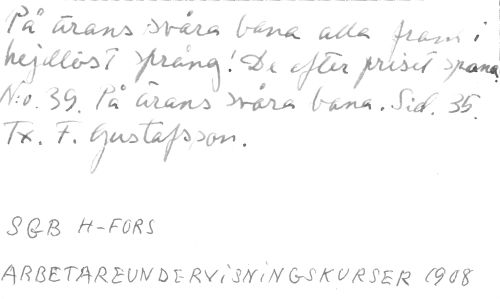 På ärans svåra bana alla fram i
hejdlöst språng! De efter priset spana
N:o. 39. På ärans svåra bana. Sid. 35.
Tx. F. Gustafsson.
SGB H-FORS
ARBETAREUNDERVISNINGSKURSER 1908